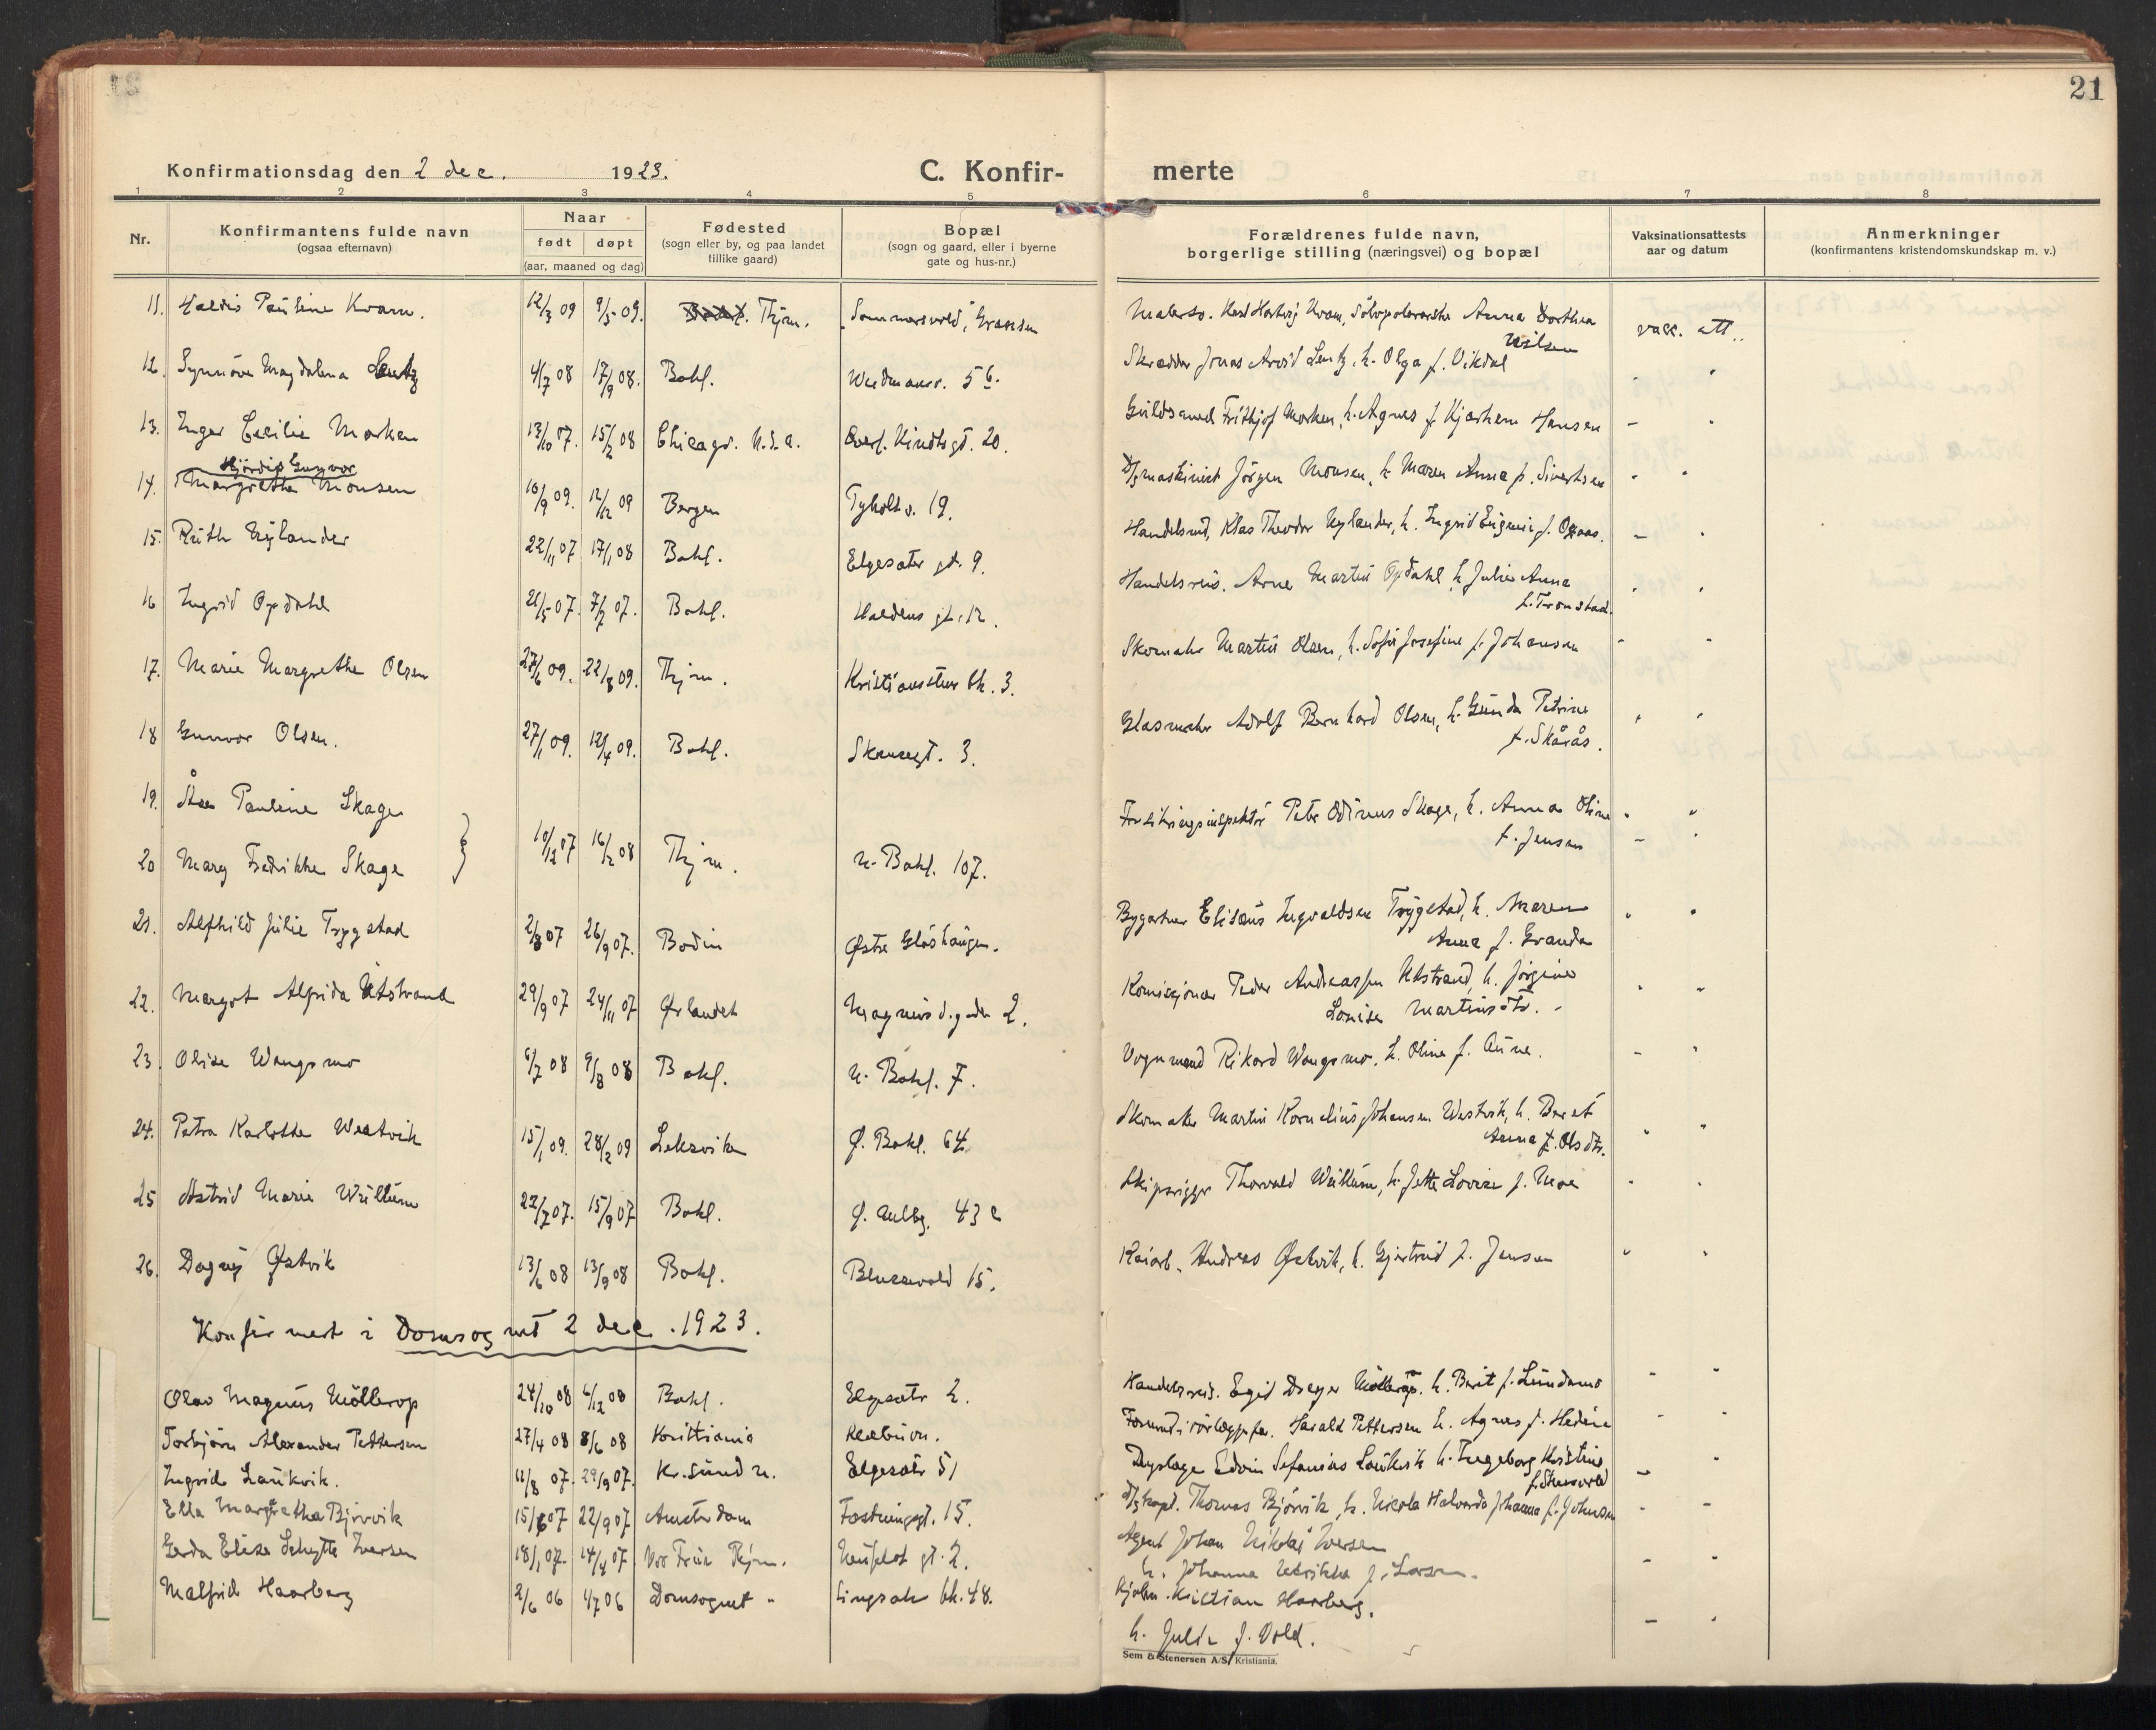 21
Konfirmationsdag den 2 dec. 1923.
C. Konfir-
merte
1 2 3 4 5 6 7 8
Nr.
Konfirmantens fulde navn
(ogsaa efternavn)
Naar
født døpt
(aar, maaned og dag)
Fødested
(sogn eller by, og paa landet
tillike gaard)
Bopæl
(sogn og gaard, eller i byerne
gate og hus-nr.)
Forældrenes fulde navn,
borgerlige stilling (næringsvei) og bopæl
Vaksinationsattests
aar og datum
Anmerkninger
(konfirmantens kristendomskundskap m. v.)
11. Haldis Pauline Kvam. 12/3 09 9/5 09. Thjm. Sommersvold, Kvam, Anna Dorthea vacc. att.
Nilsen
12. Synnöve Magdalena Lentz 4/7 08 17/9 08. Bakl. 56. Skrædder Jonas Arvid Lentz, h. Olga f. Vikdal
13. Inger Cecilie Morken 13/10 07. 15/2 08 Chicago. U.S.A. 20. Guldsmed Frithjof Morken, h. Agnes f. Kjærhem Hansen
Hjördis Gunvor
14. Margrethe Monsen 10/9 09. 12/12 09 Bergen Tyholt v. 19. D/smaskinist Jörgen Monsen, h. Maren Anna f. Sivertsen
15. Ruth Nylander 22/11 07 17/1 08 Bakl. Elgesæter gt. 9. Klas Theodor Nylander, h. Ingrid Eugenie f.
16 Ingrid Opdahl 26/5 07. 7/7 07. Bakl. gt. 12. Handelsreis. Arne Martin Opdahl h. Julie Anna
f. Tronstad.
17. Marie Margrethe Olsen 27/6 09. 22/8 09. Thjm. Kristianstens bk. 3. Skomaker Martin Olsen, h. Sofie Josefine f. Johansen
18 Gunvor Olsen. 27/1 09. 12/4 09. Bakl. Skansegt. 3. Glasmaker Adolf Bernhard Olsen, h. Gunda Petrine
f. Skårås.
19. Åse Pauline Skage
Petter Odinus Skage, h. Anna Oline
20 Mary Fredrikke Skage 10/12 07 16/2 08 Thjm. N. Bakl. 107.
f. Jensen
21. Alfhild Julie Trygstad 2/8 07 26/9 07. Bodin Østre Gløshaugen. Elisæus Ingvaldsen Trygstad, h. Maren
Anna f. Grande
22. Margot Alfrida Utstrand 29/9 07 24/11 07 Ørlandet Magnus d. g. gaden 2. Komisjonær Peder Andreassen Utstrand, h. Jörgine
Louise Martinsdtr.
23. Olise Wangsmo 6/7 08 9/8 08 Bakl. N. Bakl. 7. Vognmand Rikard Wangsmo. h. Oline f. Aune.
24. Petra Karlotte Westvik 15/1 09. 28/2 09 Leksviken Ø. Bakl. 64. Skomaker Martin Kornelius Johansen Westvik, h. Beret
Anna f. Olsdtr.
25 Astrid Marie Wullum 22/7 07. 15/9 07 Bakl. 43 Skipsrigger Thorvald Wullum, h. Jette Lovise f. Moe
26. Dagny Østvik 13/6 08 13/9 08 Bakl. Blussuvold 15. Kaiarb. Andreas Østvik, h. Gjertrud f. Jensen
Konfirmert i Domsognet 2 dec. 1923.
Olav Magnus Möllerop 24/10 08 6/12 08 Bakl. Elgesætr 2. Handelsreis. Egil Dreyer Möllerop. h. Berit f. Lundamo
Torbjörn Alexander Pettersen 27/4 08 8/6 08 Kristiania Harald Pettersen h. Agnes f.
Ingrid Laukvik. 11/8 07. 29/9 07. Kr.sund n. Elgesætr 51 Edvin Stefanius Laukvik h. Ingeborg Kristine
Ella Margretha Björvik 15/6 07 22/9 07 Amsterdam Festningsgt. 15. D/skapt. Thomas Björvik, h. Nicola Halvarda Johanna f. Johnsen
Gerda Elise Schytte Iversen 18/1 07. 14/4 07. Vor Frue Thjm. gt. 2. Agent Johan Nikolai Iversen
h. Johanna Ulrikka f. Larsen.
Malfrid Haarberg 2/6 06 1/7 06 Domsognet " Singsaker bk. 48. Kristian Haarberg.
h. Julie f. Vold.
Sem & Stenersen A/S, Kristiania.